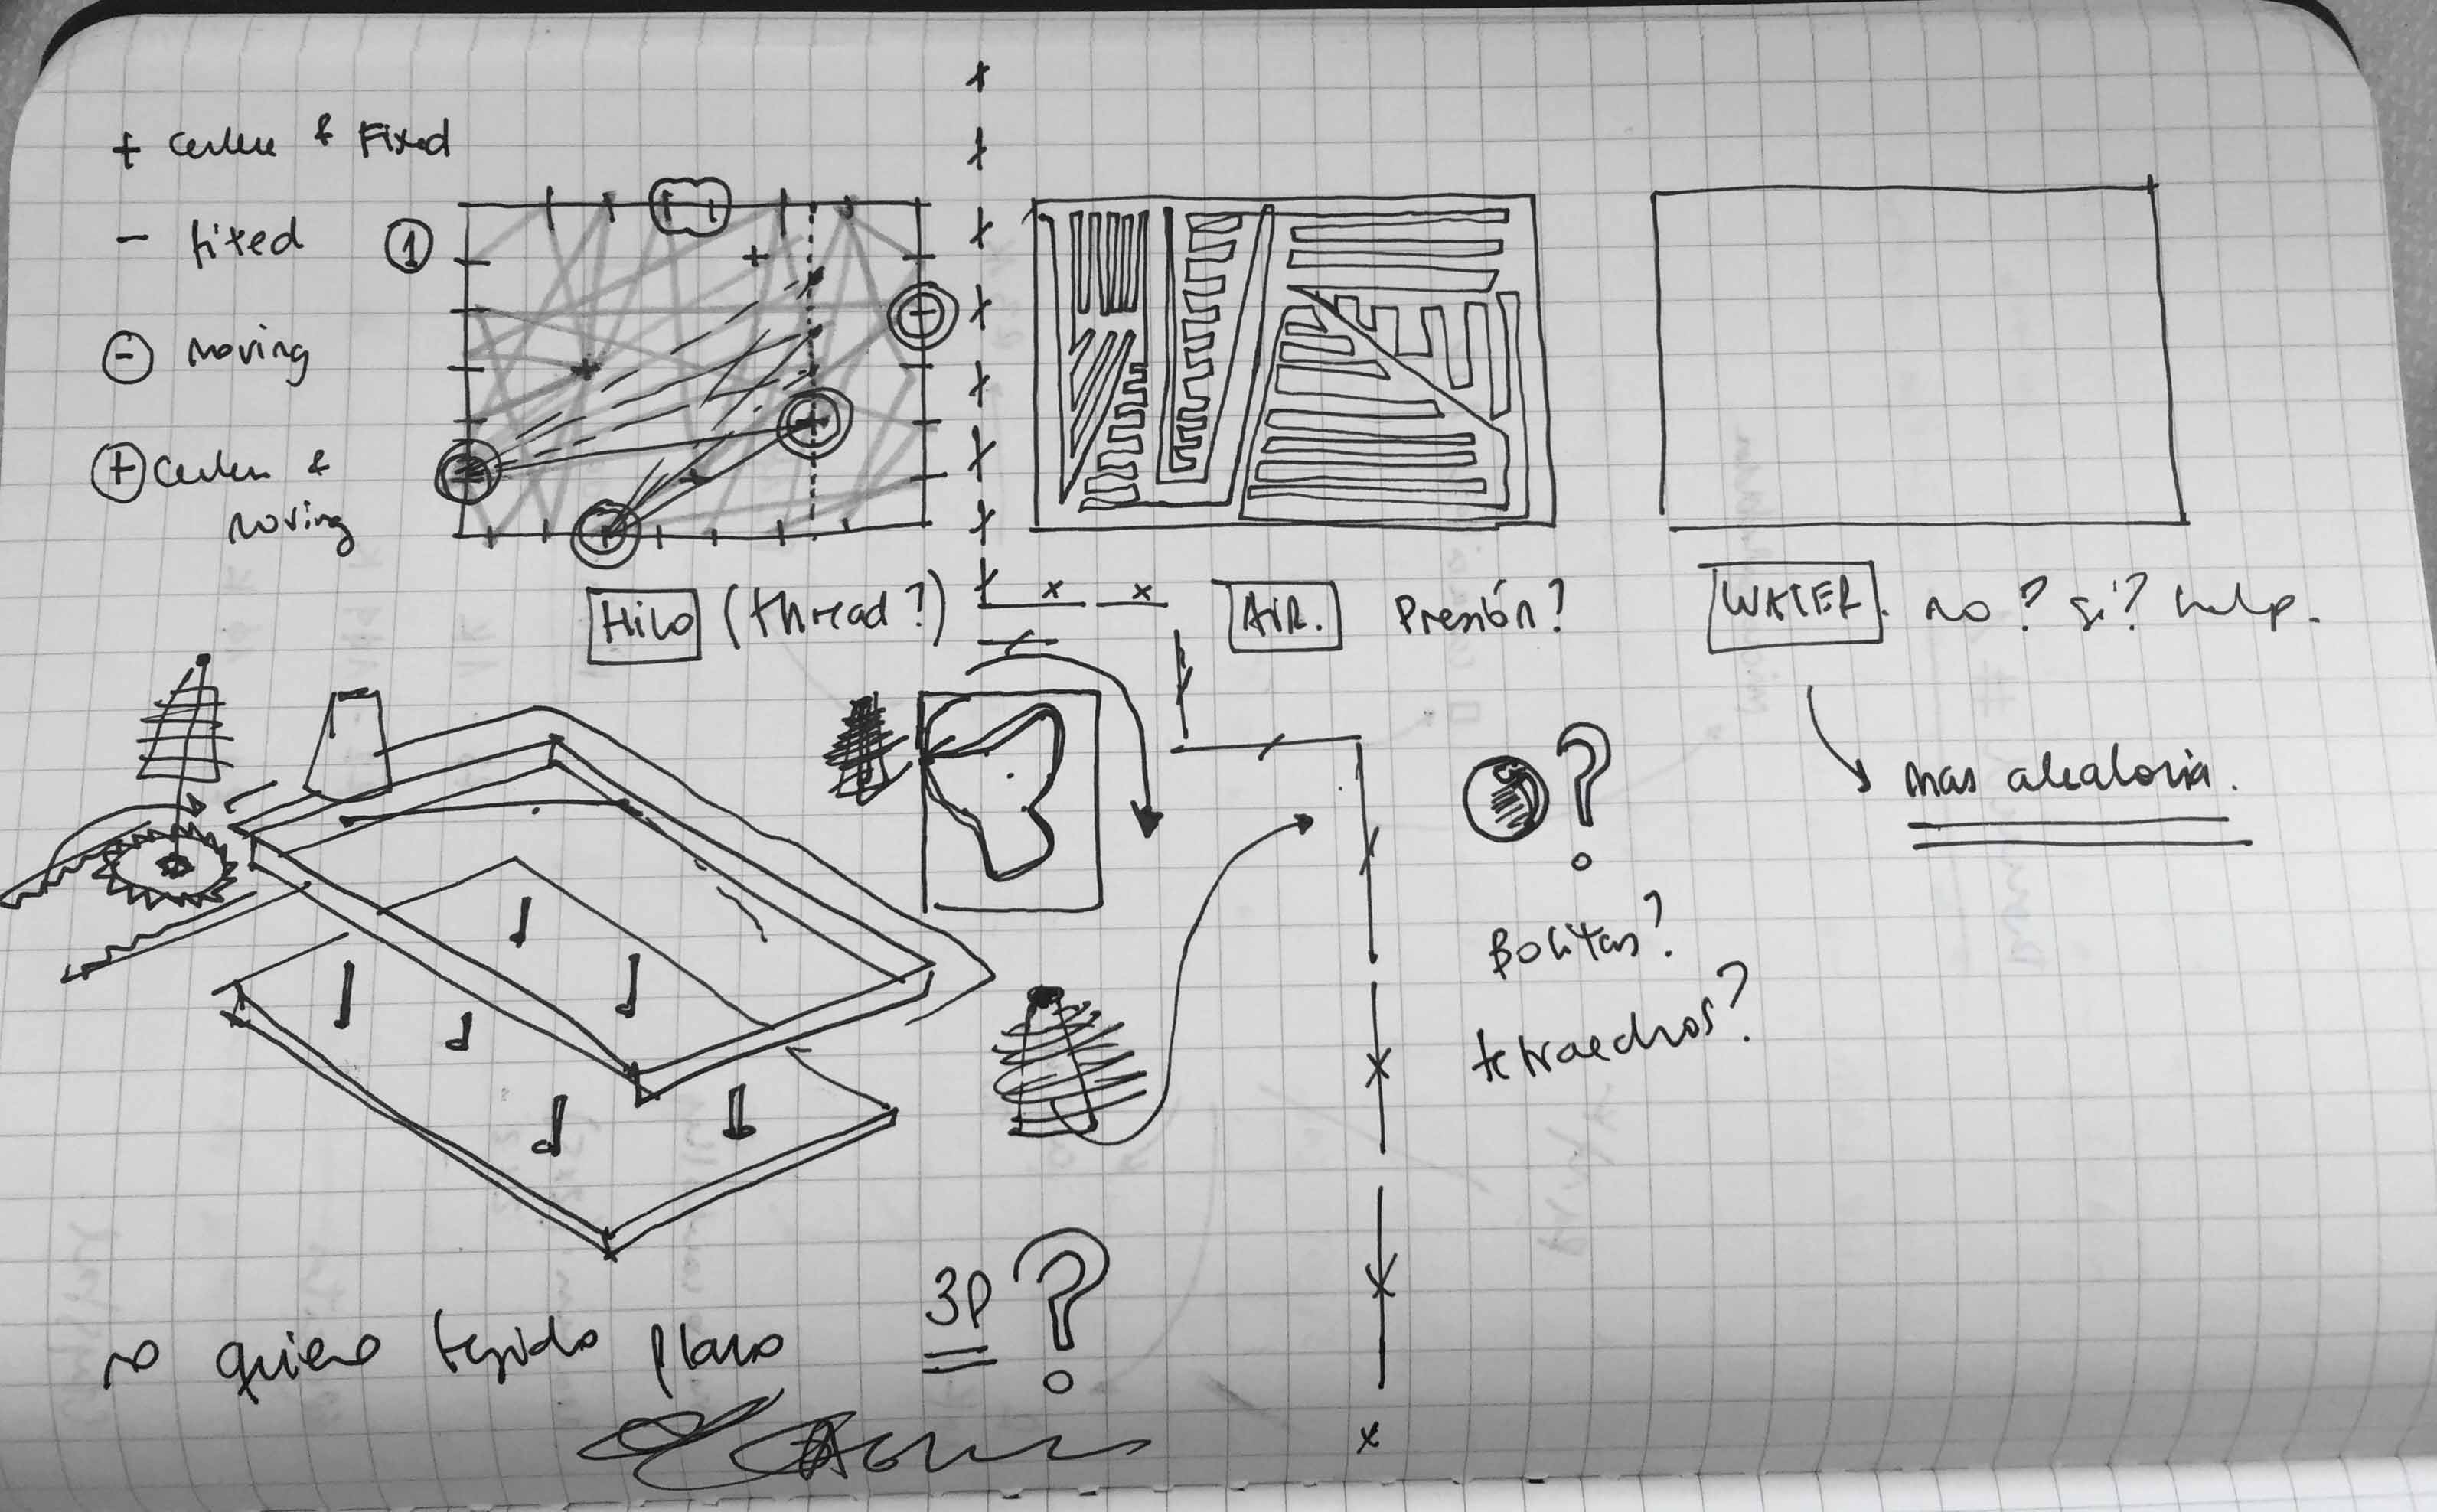 + center & Fixed
- fixed
①
⊖ moving
⊕ center &
moving
Hilo (thread?)
AIR. Presión?
WATER. no? si? help.
mas aleatoria.
?
Bolitas?
tetraedros?
no quiero tejido plano
3D ?